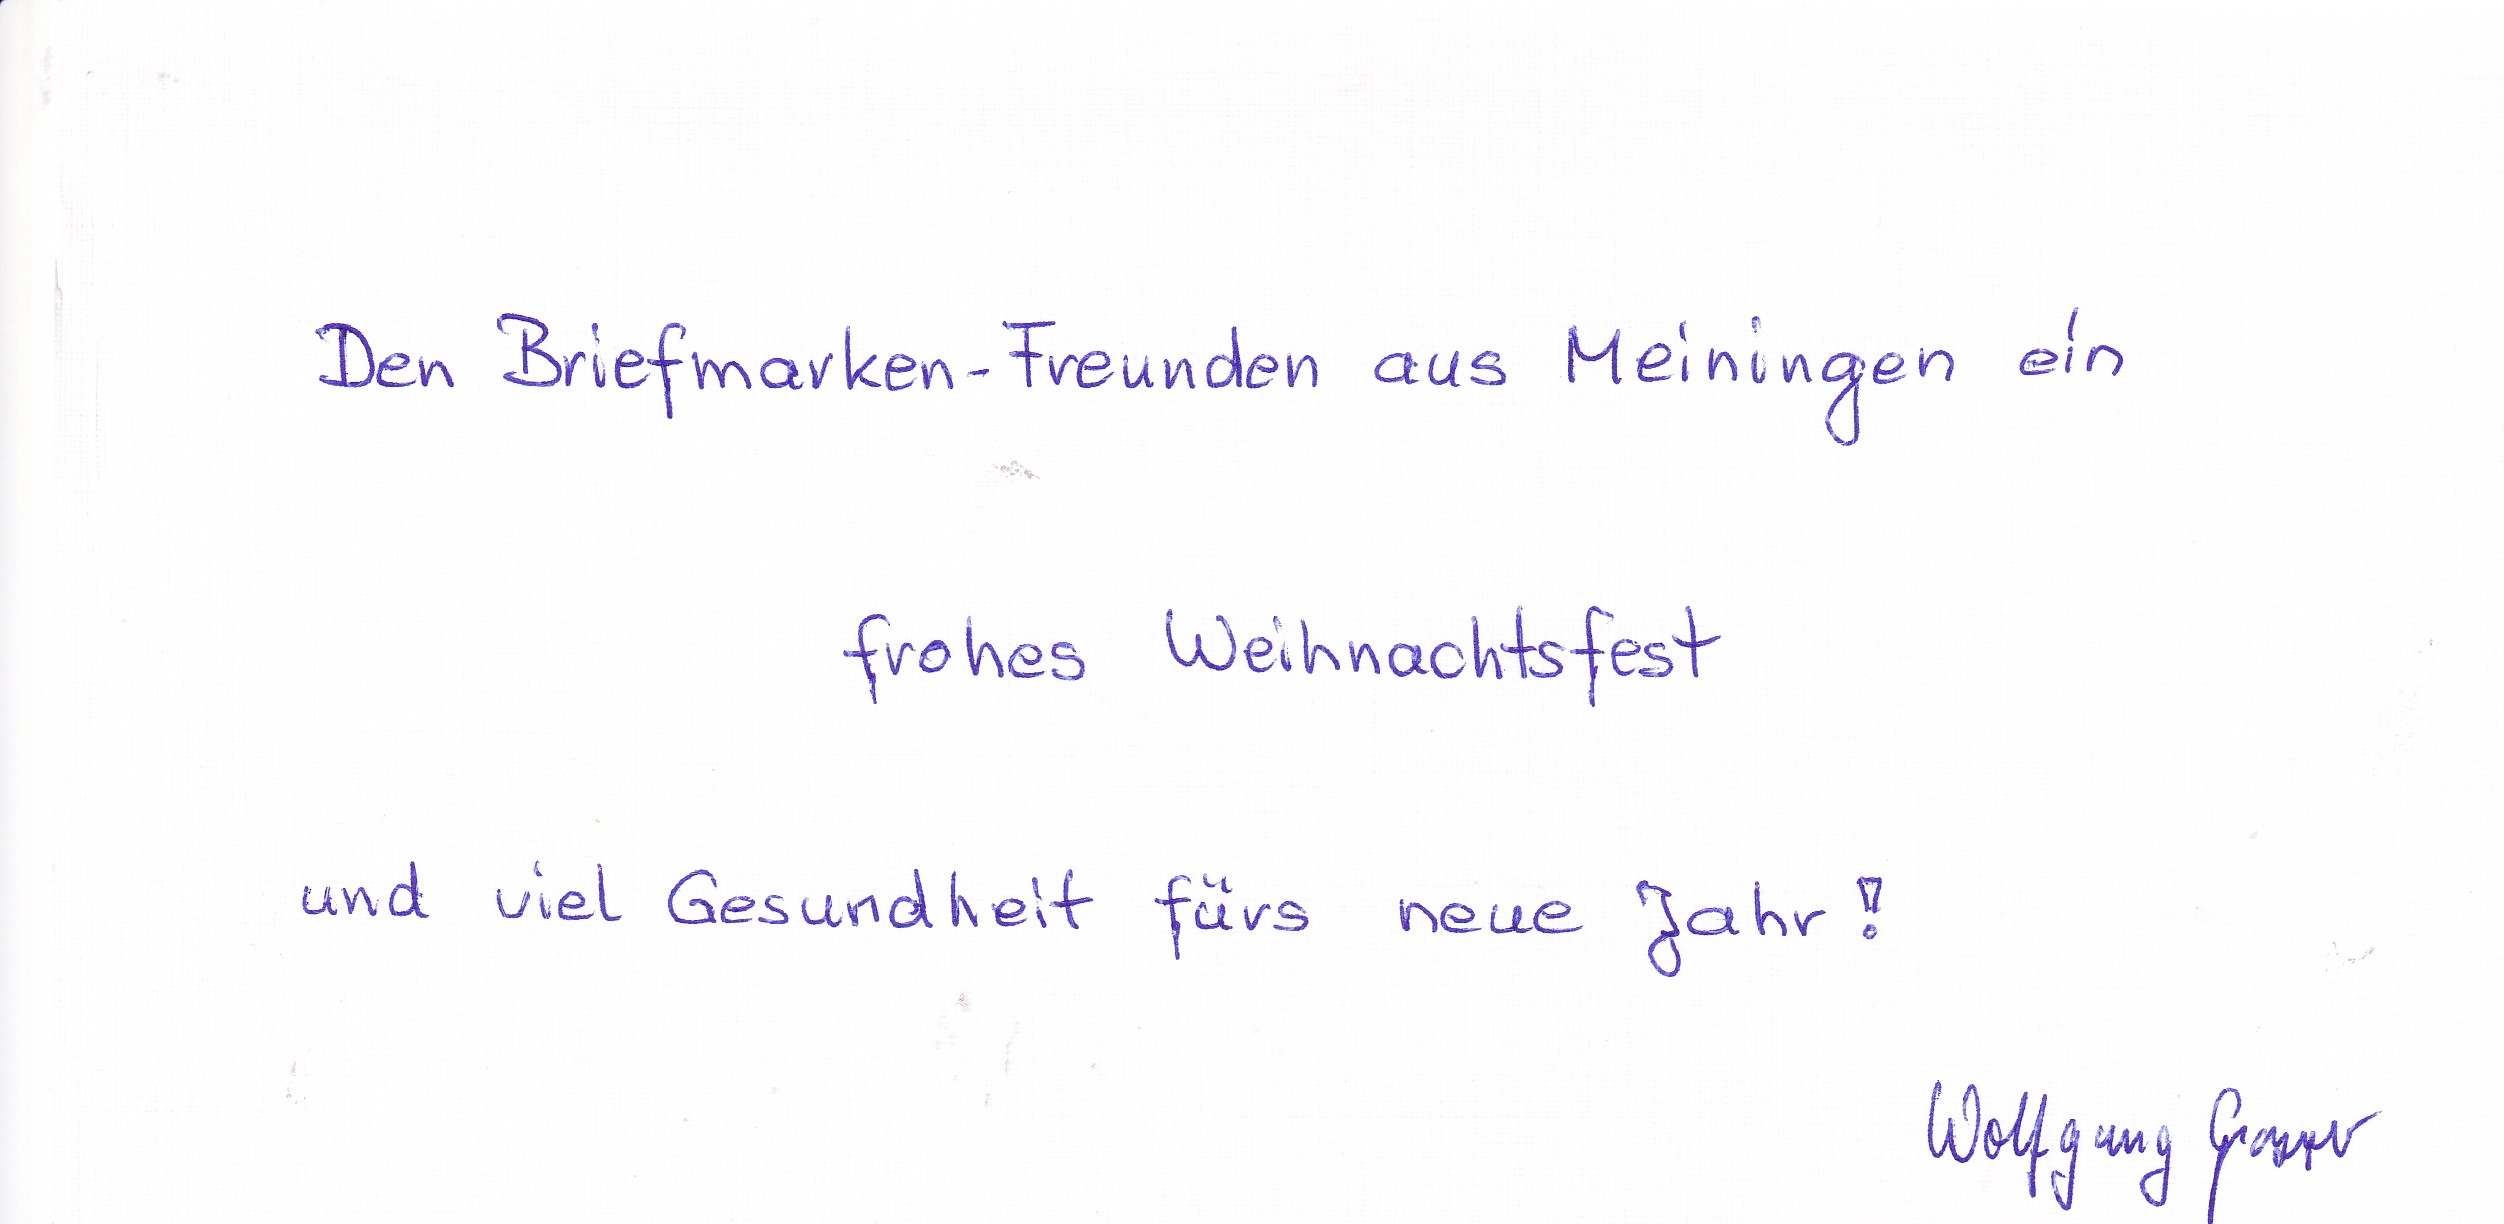 Den Briefmarken-Freunden aus Meiningen ein
frohes Weihnachtsfest
und viel Gesundheit fürs neue Jahr!
Wolfgang